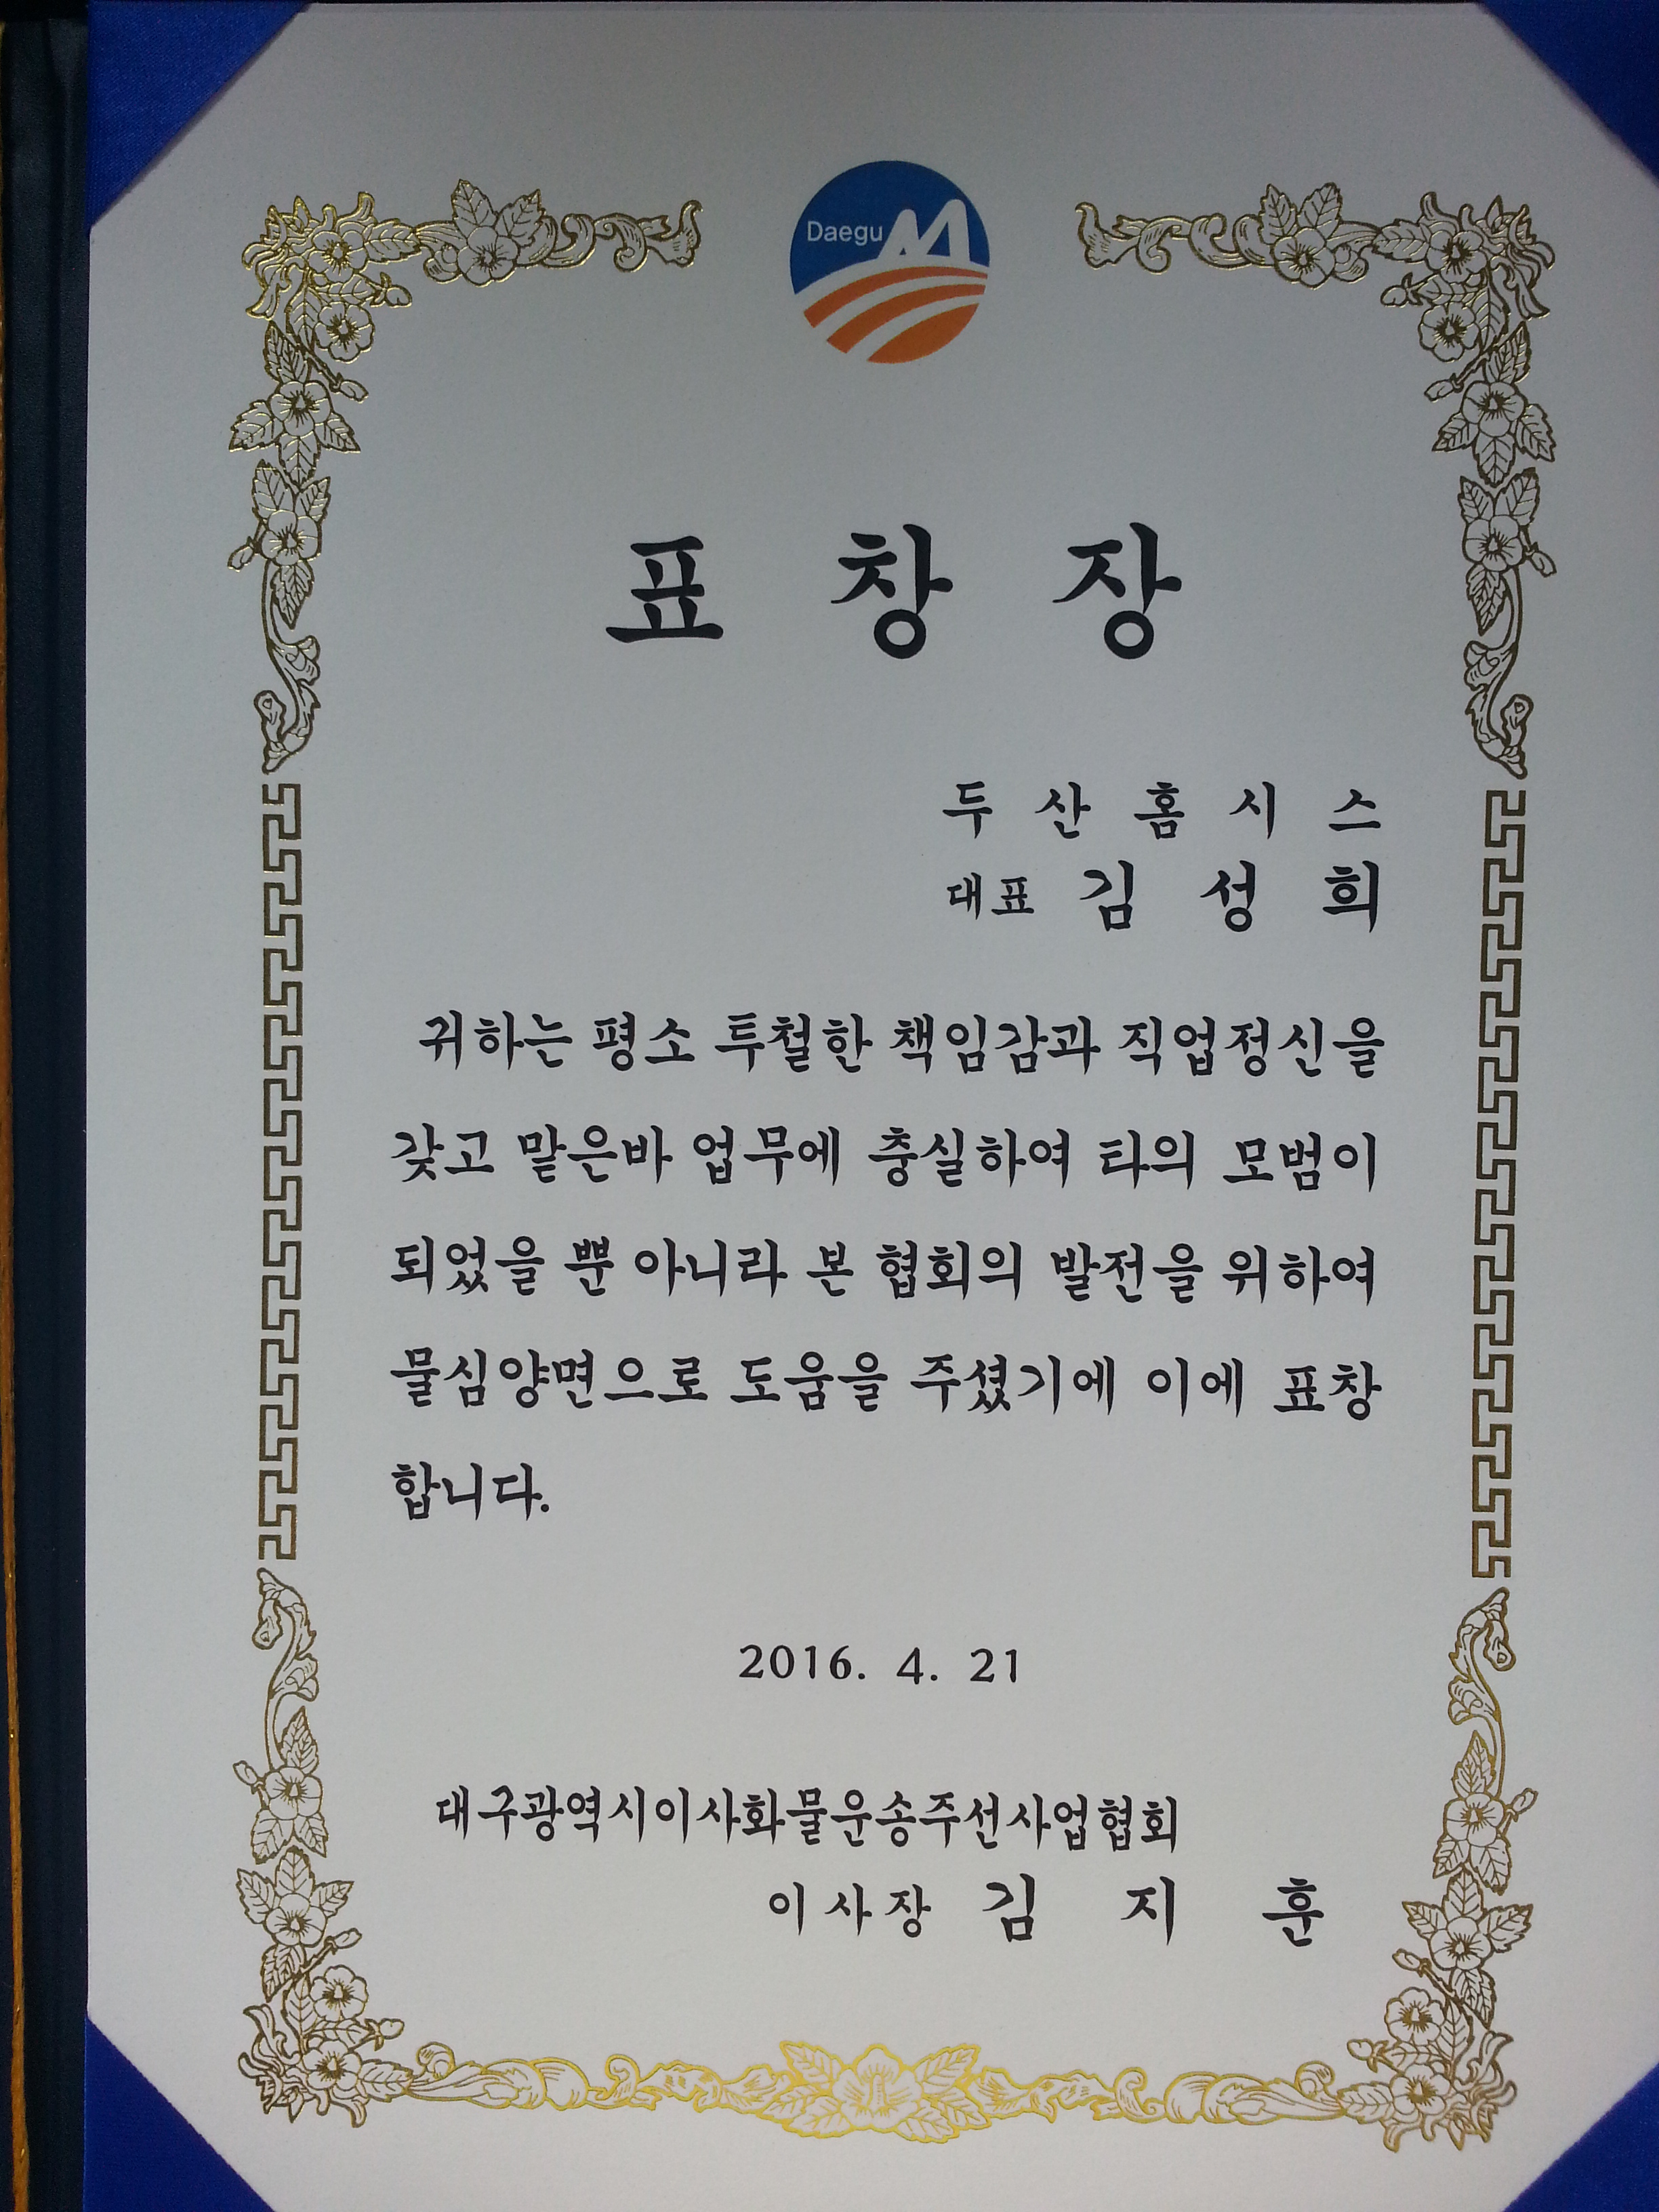 Daegu
표 창 장
두 산 홈 시 스
대표 김 성 희
귀하는 평소 투철한 책임감과 직업정신을
갖고 맡은바 업무에 충실하여 타의 모범이
되었을 뿐 아니라 본 협회의 발전을 위하여
물심양면으로 도움을 주셨기에 이에 표창
합니다.
2016. 4. 21
대구광역시이사화물운송주선사업협회
이사장 김 지 훈